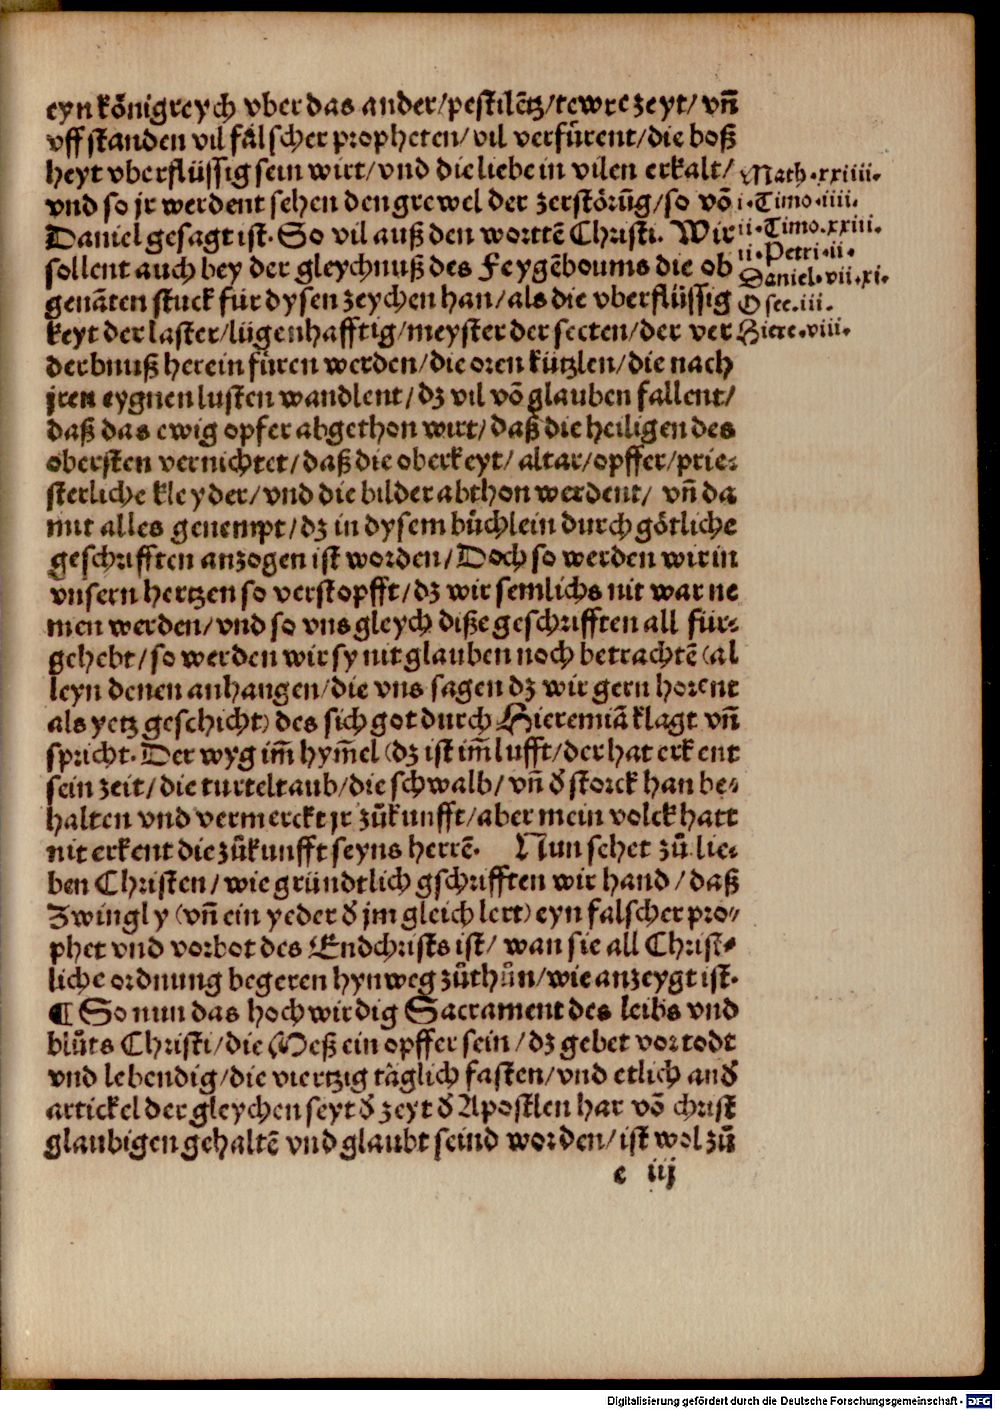 eyn königreych vber das ander/pestilētz/tewre zeyt/ vn̄
vff standen vil fälscher propheten/ vil verfürent/die boß
heyt vberflüssig sein wirt/vnd die liebe in vilen erkalt/
vnd so jr werdent sehen den grewel der zerstörūg/so vō
Daniel gesagt ist. So vil auß den wortē Christi. Wir
sollent auch bey der gleychnuß des Feygēboums die ob
genāten stuck für dysen zeychen han/als die vberflüssig
keyt der laster/lügenhafftig/meyster der secten/der ver
derbnuß herein füren werden/die oren kützlen/die nach
jren eygnen lusten wandlent/dz vil vō glauben fallent/
daß das ewig opfer abgethon wirt/daß die heiligen des
obersten vernichtet/daß die oberkeyt/altar/opffer/prie-
sterliche kleyder/vnd die bilder abthon werdent/ vn̄ da
mit alles genempt/dz in dysem büchlein durch götliche
geschrifften anzogen ist worden/Doch so werden wir in
vnsern hertzen so verstopfft/dz wir semlichs nit war ne
men werden/vnd so vns gleych diße geschrifften all für-
gehebt/so werden wir sy nit glauben noch betrachtē (al
leyn denen anhangen/die vns sagen dz wir gern horent
als yetz geschicht) des sich got durch Hieremiā klagt vn̄
spricht. Der wyg im̄ hym̄el (dz ist im̄ lufft/der hat erkent
sein zeit/die turteltaub/die schwalb/vn̄ ď storck han be-
halten vnd vermerckt jr zůkunfft/aber mein volck hatt
nit erkent die zůkunfft seyns herrē. Nun sehet zů lie-
ben Christen/wie gründtlich gschrifften wir hand/daß
Zwingly (vn̄ ein yeder ď jm gleich lert) eyn falscher pro-
phet vnd vorbot des Endchrists ist/ wan sie all Christ-
liche ordnung begeren hynweg zůthůn/wie anzeygt ist.
¶ So nun das hochwirdig Sacrament des leibs vnd
blůts Christi/die Meß ein opffer sein/dz gebet vor todt
vnd lebendig/die viertzig täglich fasten/vnd etlich anď
artickel der gleychen seyt ď zeyt ď Apostlen har vō christ
glaubigen gehaltē vnd glaubt seind worden/ist wol zů
e iij
Math.xxiiii.
i.Timo.iiii.
ii.Timo.xxiii.
ii.Petri.ii.
Daniel.vii.xi.
Osee.iii.
Hiere.viii.
Digitalisierung gefördert durch die Deutsche Forschungsgemeinschaft - DFG